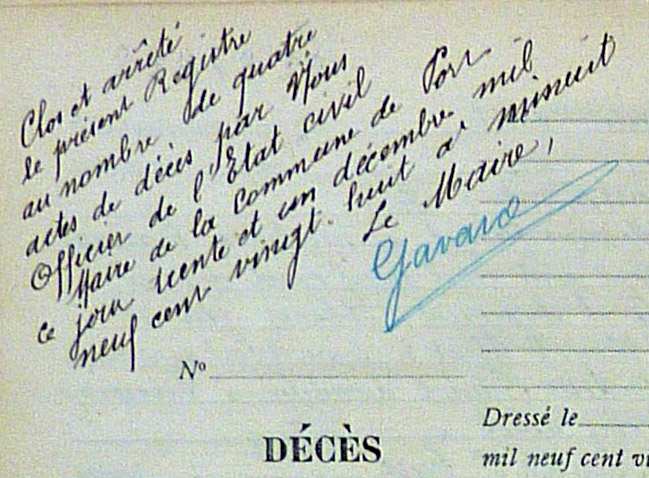 Clos et arrêté
le présent Registre
au nombre de quatre
actes de décès par Nous
Officier de l'Etat civil
Maire de la Commune de Port
ce jour trente et un décembre mil
neuf cent vingt-huit à minuit
Le Maire,
Gavard
Nº
DÉCÈS
Dressé le
mil neuf cent vi